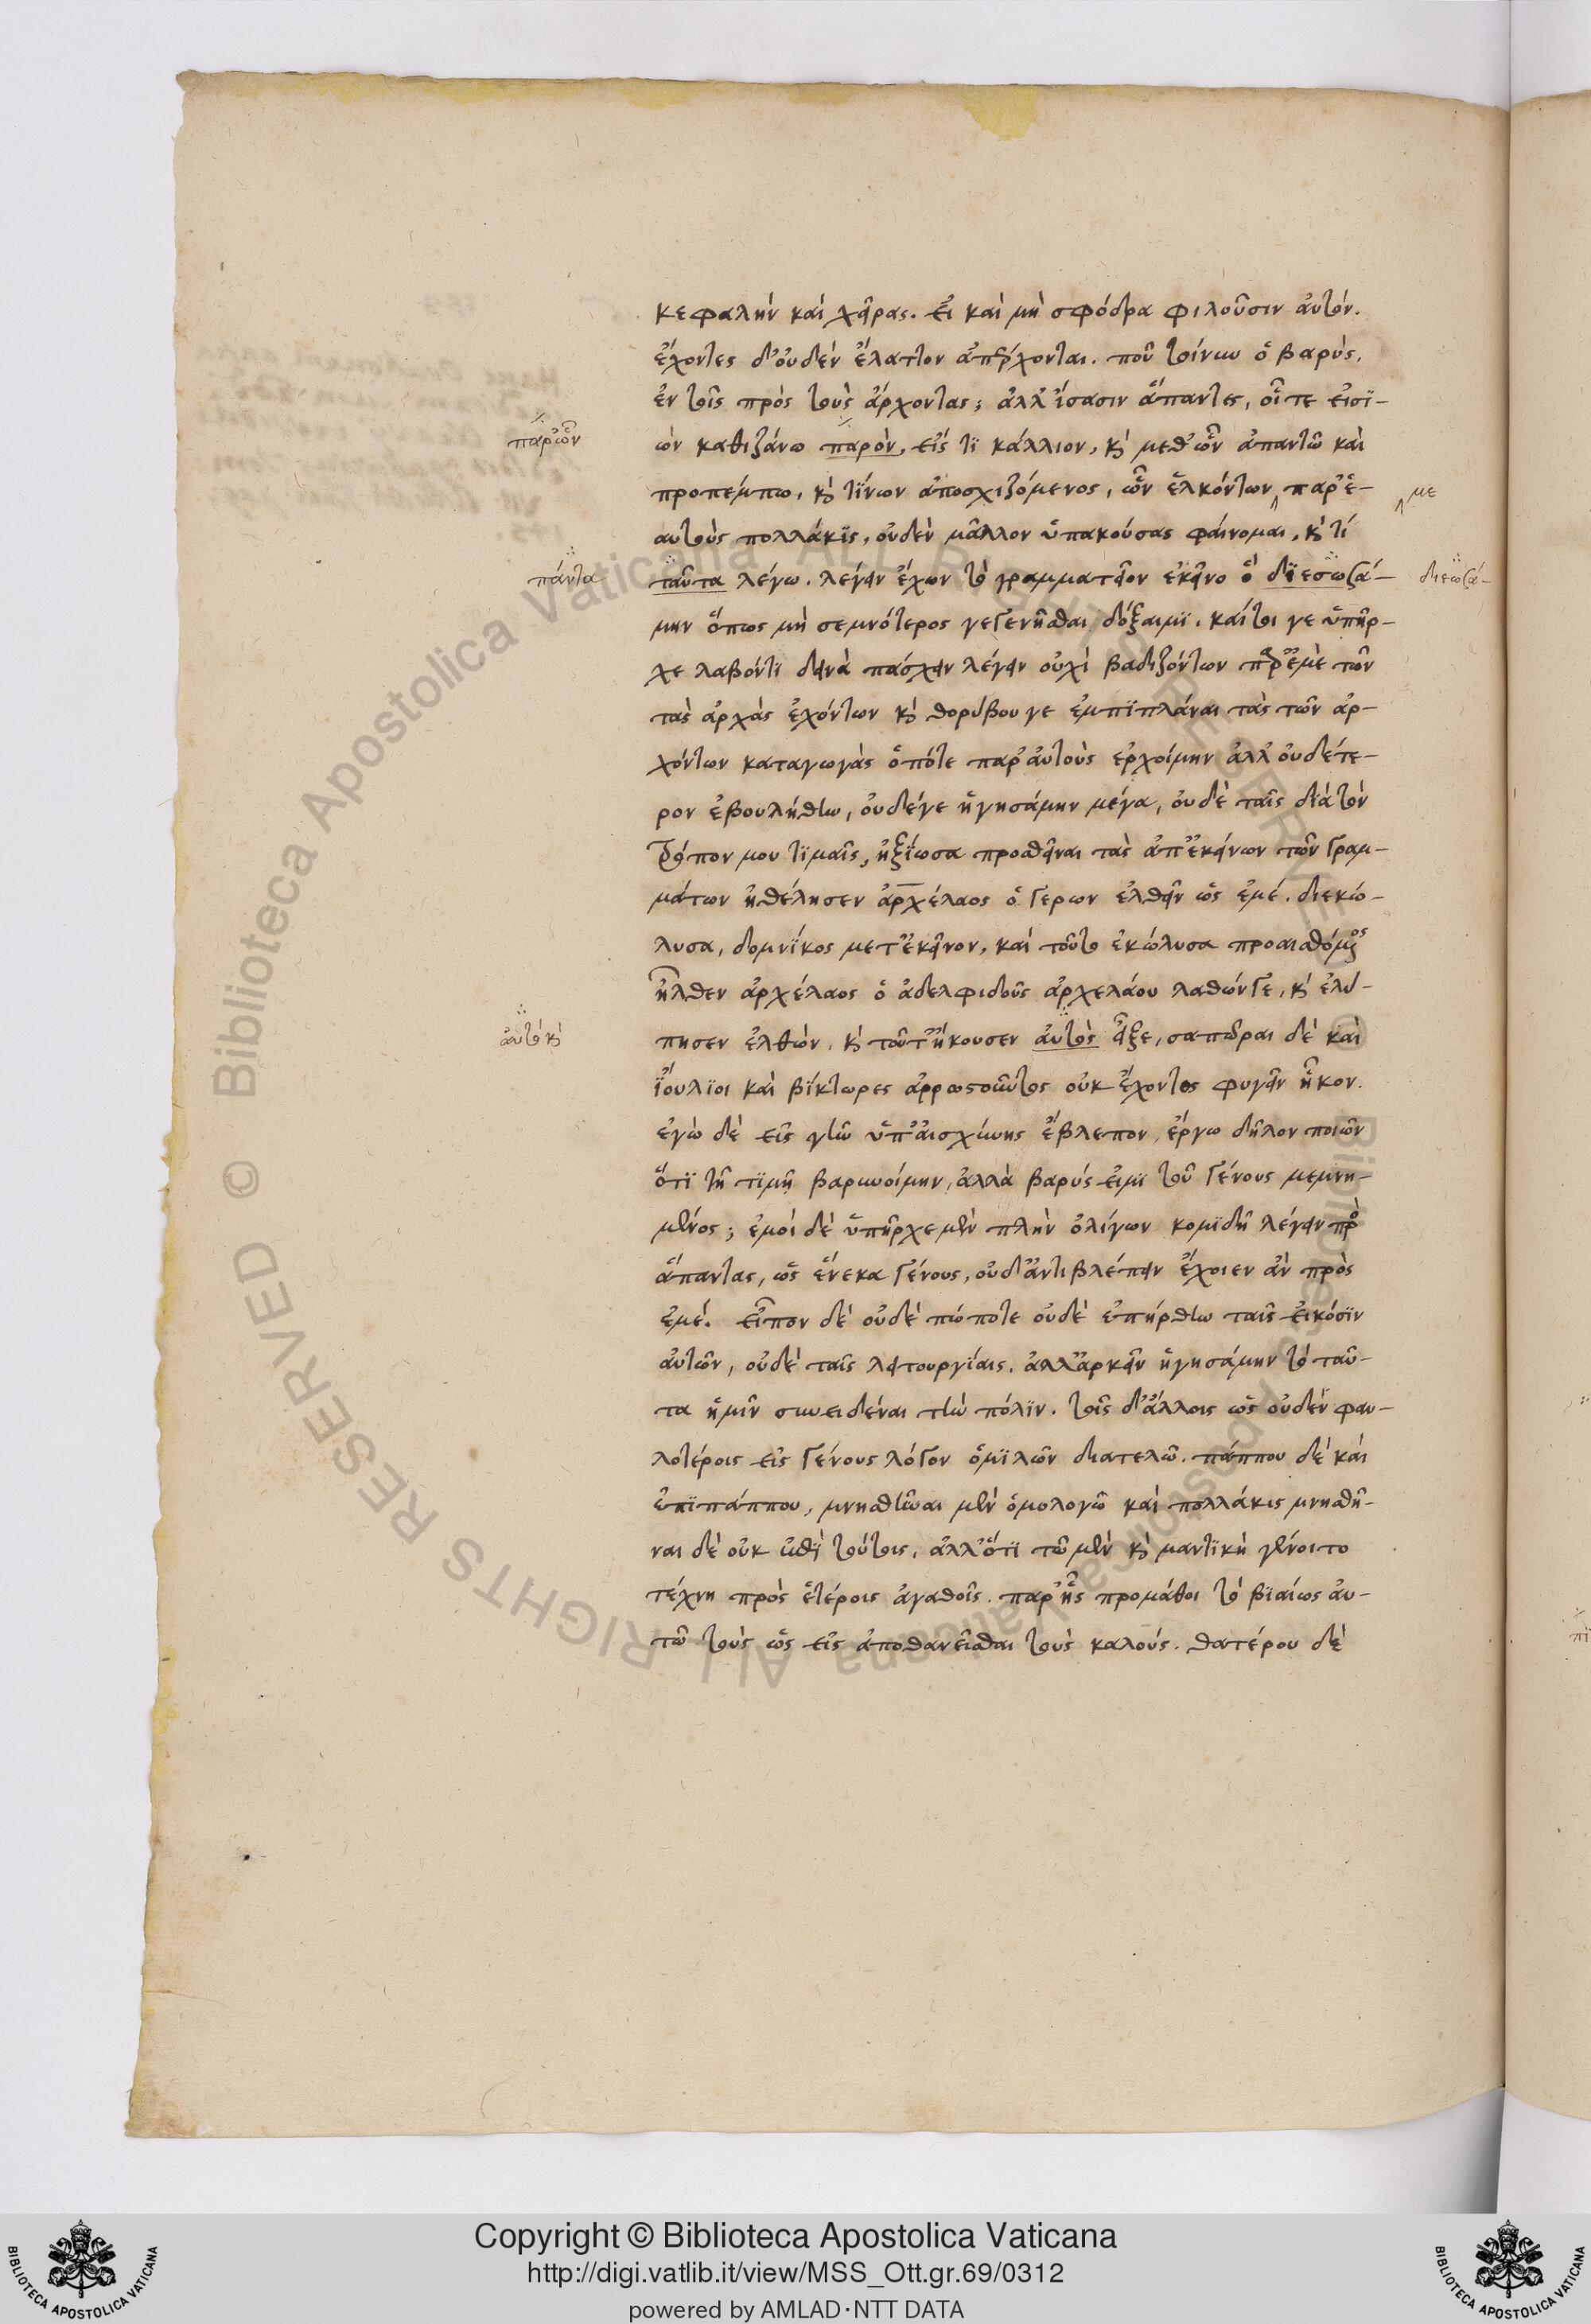 κεφαλὴν καὶ χεῖρας. εἰ καὶ μὴ σφόδρα φιλοῦσιν αὐτόν.
ἔχοντες δ' οὐδὲν ἔλαττον ἀπέρχονται. ποῦ τοίνυν ὁ βαρύς,
ἐν τοῖς πρὸς τοὺς ἄρχοντας; ἀλλ' ἴσασιν ἅπαντες, οἵ τε εἰσϊ-
παρ' ὧν
ὼν καθιζάνω παρὸν, εἰς τι κάλλιον, κ μεθ' ὧν ἀπαντῶ καὶ
προπέμπω, κ τίνων ἀποσχιζόμενος, ὧν ἑλκόντων παρ' ἑ-
με
αυτοὺς πολλάκϊς, οὐδὲν μᾶλλον ὑπακούσας φαίνομαι, κ τί
πάντα
ταῦτα λέγω. λέγειν ἔχων τὸ γραμματεῖον ἐκεῖνο ὃ δϊεσωζά-
διεωζά-
μην ὅπως μὴ σεμνότερος γεγενῆσθαι δόξαιμϊ. καίτοι γε ὑπῆρ-
χε λαβόντϊ δεινὰ πάσχειν λέγειν οὐχὶ βαδιζόντων παρ' ἐμὲ τῶν
τὰς ἀρχὰς ἐχόντων κ θορύβου γε ἐμπϊπλάναι τὰς τῶν ἀρ-
χόντων καταγωγὰς ὁπότε παρ' αὐτοὺς ἐρχοίμην ἀλλ' οὐδέτε-
ρον ἐβουλήθην, οὐδέγε ἡγησάμην μέγα, οὐδὲ ταῖς δϊὰ τὸν
τρόπον μου τϊμαῖς, ἠξίωσα προσθεῖναι τὰς ἀπ' ἐκείνων τῶν γραμ-
μάτων ἠθέλησεν ἀρχέλαος ὁ γέρων ἐλθεῖν ὡς ἐμέ. διεκώ-
λυσα, δομνϊκος μετ' ἐκεῖνον, καὶ τοῦτο ἐκώλυσα προαισθόμενος
ἦλθεν ἀρχέλαος ὁ ἀδελφιδοῦς ἀρχελάου λαθών γε, κ ἐλύ-
αὐτὸ κ
πησεν ἐλθὼν, κ τοῦτ' ἤκουσεν αὐτὸς εἶξε, σαπῶραι δὲ καὶ
ϊούλϊοι καὶ βίκτωρες ἀρρωστοῦντος οὐκ ἔχοντος φυγεῖν ἧκον.
ἐγὼ δὲ εἰς γῆν ὑπ' αἰσχύνης ἔβλεπον, ἔργω δῆλον ποιῶν
ὅτϊ τῆ τϊμῆ βαρυνοίμην, ἀλλὰ βαρύς εἰμϊ τοῦ γένους μεμνη-
μένος; ἐμοὶ δὲ ὑπῆρχε μὲν πλὴν ὀλίγων κομϊδῆ λέγειν πρὸς
ἅπαντας, ὡς ἕνεκα γένους, οὐδ' ἀντιβλέπειν ἔχοιεν ἂν πρὸς
ἐμέ. εἶπον δὲ οὐδὲ πώποτε οὐδὲ ἐπήρθην ταῖς εἰκόσϊν
αὐτῶν, οὐδὲ ταῖς λειτουργίαις. ἀλλ' ἀρκεῖν ἡγησάμην τὸ ταῦ-
τα ἡμῖν συνειδέναι τὴν πόλϊν. τοῖς δ' ἄλλοις ὡς οὐδὲν φαυ-
λοτέροις εἰς γένους λόγον ὁμϊλῶν διατελῶ. πάππου δὲ καὶ
ἐπϊπάππου, μνησθῆναι μὲν ὁμολογῶ καὶ πολλάκις μνησθῆ-
ναι δὲ οὐκ ἐπὶ τούτοις, ἀλλ' ὅτϊ τῶ μὲν κ μαντϊκὴ γένοιτο
τέχνη πρὸς ἑτέροις ἀγαθοῖς. παρ' ἧς προμάθοι τὸ βϊαίως αὐ-
τῶ τοὺς ὡς εἰς ἀποθανεῖσθαι τοὺς καλούς. θατέρου δὲ
Copyright © Biblioteca Apostolica Vaticana
http://digi.vatlib.it/view/MSS_Ott.gr.69/0312
powered by AMLAD·NTT DATA
BIBLIOTECA APOSTOLICA VATICANA
BIBLIOTECA APOSTOLICA VATICANA